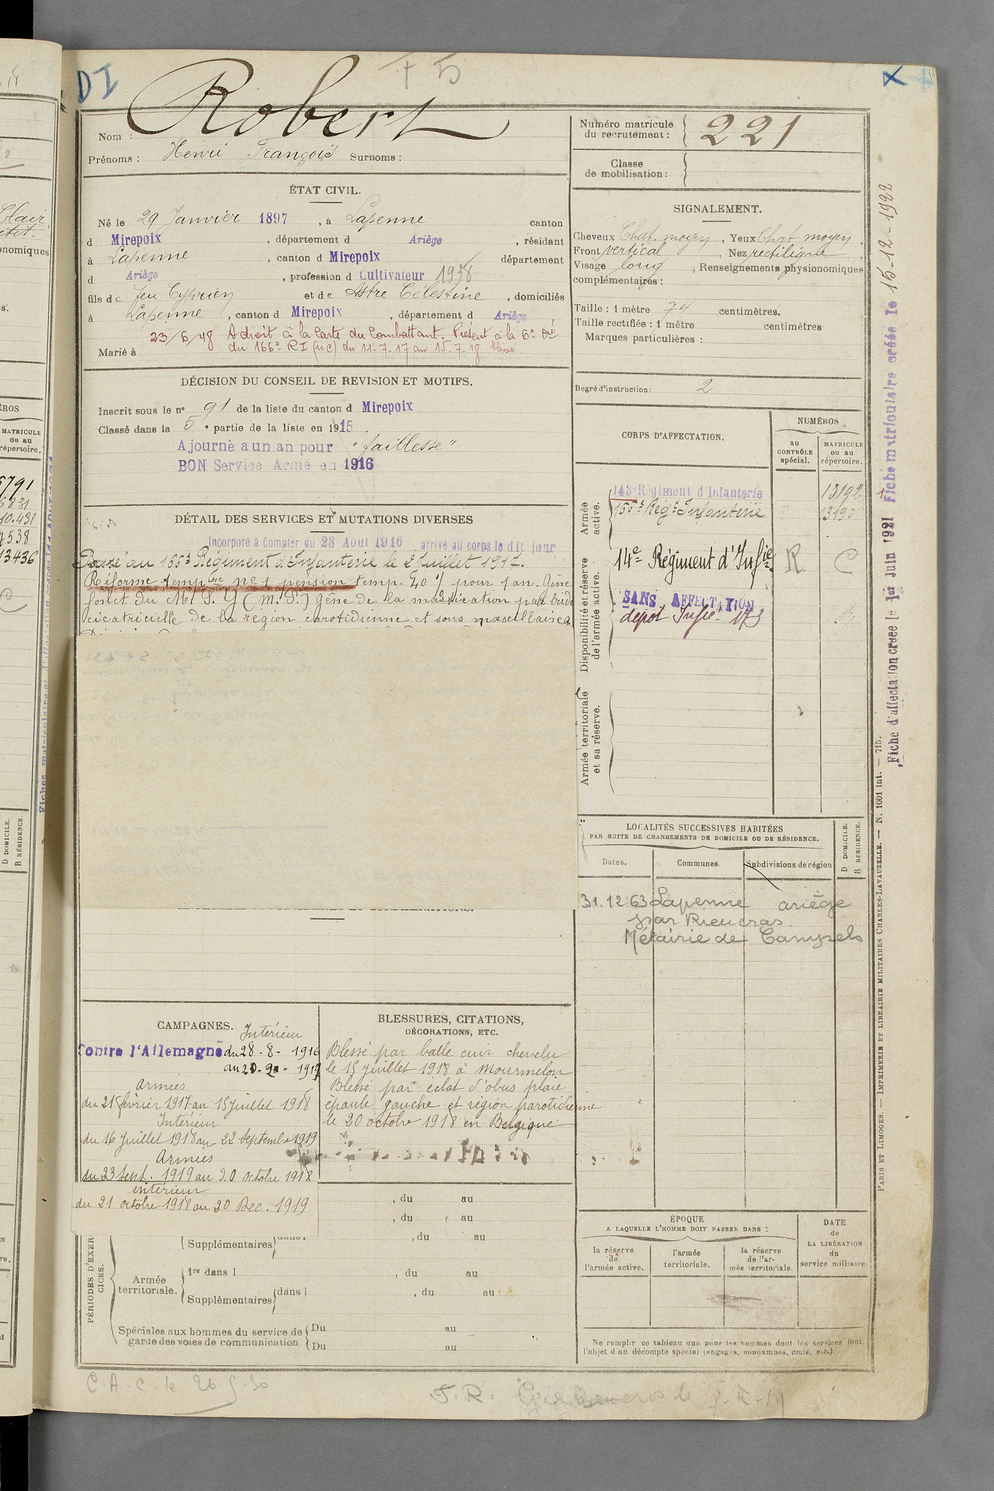 DI
F5
X
Nom : Robert
Prénoms : Henri François Surnoms :
Numéro matricule du recrutement : 221
Classe de mobilisation :
ÉTAT CIVIL.
Né le 29 Janvier 1897, à Lapenne canton
d Mirepoix, département d Ariège, résidant
à Lapenne, canton d Mirepoix département
d Ariège, profession d Cultivateur 1938
fils de feu Cyprien et de Astre Célestine, domiciliés
à Lapenne, canton d Mirepoix, département d Ariège
23/6/48 A droit à la Carte du Combattant. Présent à la 6e Cie
Marié à du 166e R I (n c) du 11.7.17 au 15.7.18 blessé.
SIGNALEMENT.
Cheveux Chat. moyen, Yeux Chat moyen
Front vertical, Nez rectiligne
Visage long, Renseignements physionomiques
complémentaires :
Taille : 1 mètre 74 centimètres.
Taille rectifiée : 1 mètre centimètres
Marques particulières :
Degré d'instruction : 2
DÉCISION DU CONSEIL DE REVISION ET MOTIFS.
Inscrit sous le n° 91 de la liste du canton d Mirepoix
Classé dans la 5e partie de la liste en 1915.
Ajourné a un an pour "faiblesse"
BON Service Armé en 1916
CORPS D'AFFECTATION.
NUMÉROS
au CONTRÔLE spécial.
MATRICULE ou au répertoire.
Armée active.
143e Régiment d'Infanterie 13192
Régt Infanterie 13190
Disponibilité et réserve de l'armée active.
14e Régiment d'Infie R C
SANS AFFECTATION
dépôt Infie 173
Armée territoriale et sa réserve.
DÉTAIL DES SERVICES ET MUTATIONS DIVERSES
Incorporé à Compter du 28 Août 1916 arrivé au corps le dit jour
Passé au Régiment d'Infanterie le 2 Juillet 1917.
Réforme tempre n° 1 pension temp. 40 % pour 1 an. Gêne
fonct. du
cicatricielle de la région carotidienne et sous maxillaire
LOCALITÉS SUCCESSIVES HABITÉES
PAR SUITE DE CHANGEMENTS DE DOMICILE OU DE RÉSIDENCE.
Dates. Communes. Subdivisions de région
D DOMICILE. R RÉSIDENCE.
31.12.63 Lapenne ariège
par Rieucros.
Métairie de Campels
CAMPAGNES.
Intérieur
Contre l'Allemagne du 28-8-1916
armées
du 21 février 1917 au 15 juillet 1918
Intérieur
du 16 Juillet 1918 au 22 Septembre 1919
Armées
du 23 Sept. 1919 au 20 octobre 1918
intérieur
du 21 octobre 1918 au 20 Dec. 1919
BLESSURES, CITATIONS,
DÉCORATIONS, ETC.
Blessé par balle cuir chevelu
le 15 juillet 1918 à Mourmelon
Blessé par éclat d'obus plaie
épaule gauche et région parotidienne
le 20 octobre 1918 en Belgique
, du au
, du au
PÉRIODES D'EXERCICES.
Supplémentaires dans l , du au
Armée territoriale.
1re dans l , du au
Supplémentaires dans l , du au
Spéciales aux hommes du service de garde des voies de communication
Du au
Du au
ÉPOQUE
A LAQUELLE L'HOMME DOIT PASSER DANS :
la réserve de l'armée active.
l'armée territoriale.
la réserve de l'armée territoriale.
DATE DE LA LIBÉRATION du service militaire.
Ne remplir ce tableau que pour les hommes dont les services font
l'objet d'un décompte spécial (engagés, condamnés, omis, etc.).
C.A.C. le 26-5-30
Fiche d'affectation créée le 1er Juin 1921
Fiche matriculaire créée le 15-12-1922
PARIS ET LIMOGES. — IMPRIMERIE ET LIBRAIRIE MILITAIRES CHARLES-LAVAUZELLE. — N. 1001 int. — 715.